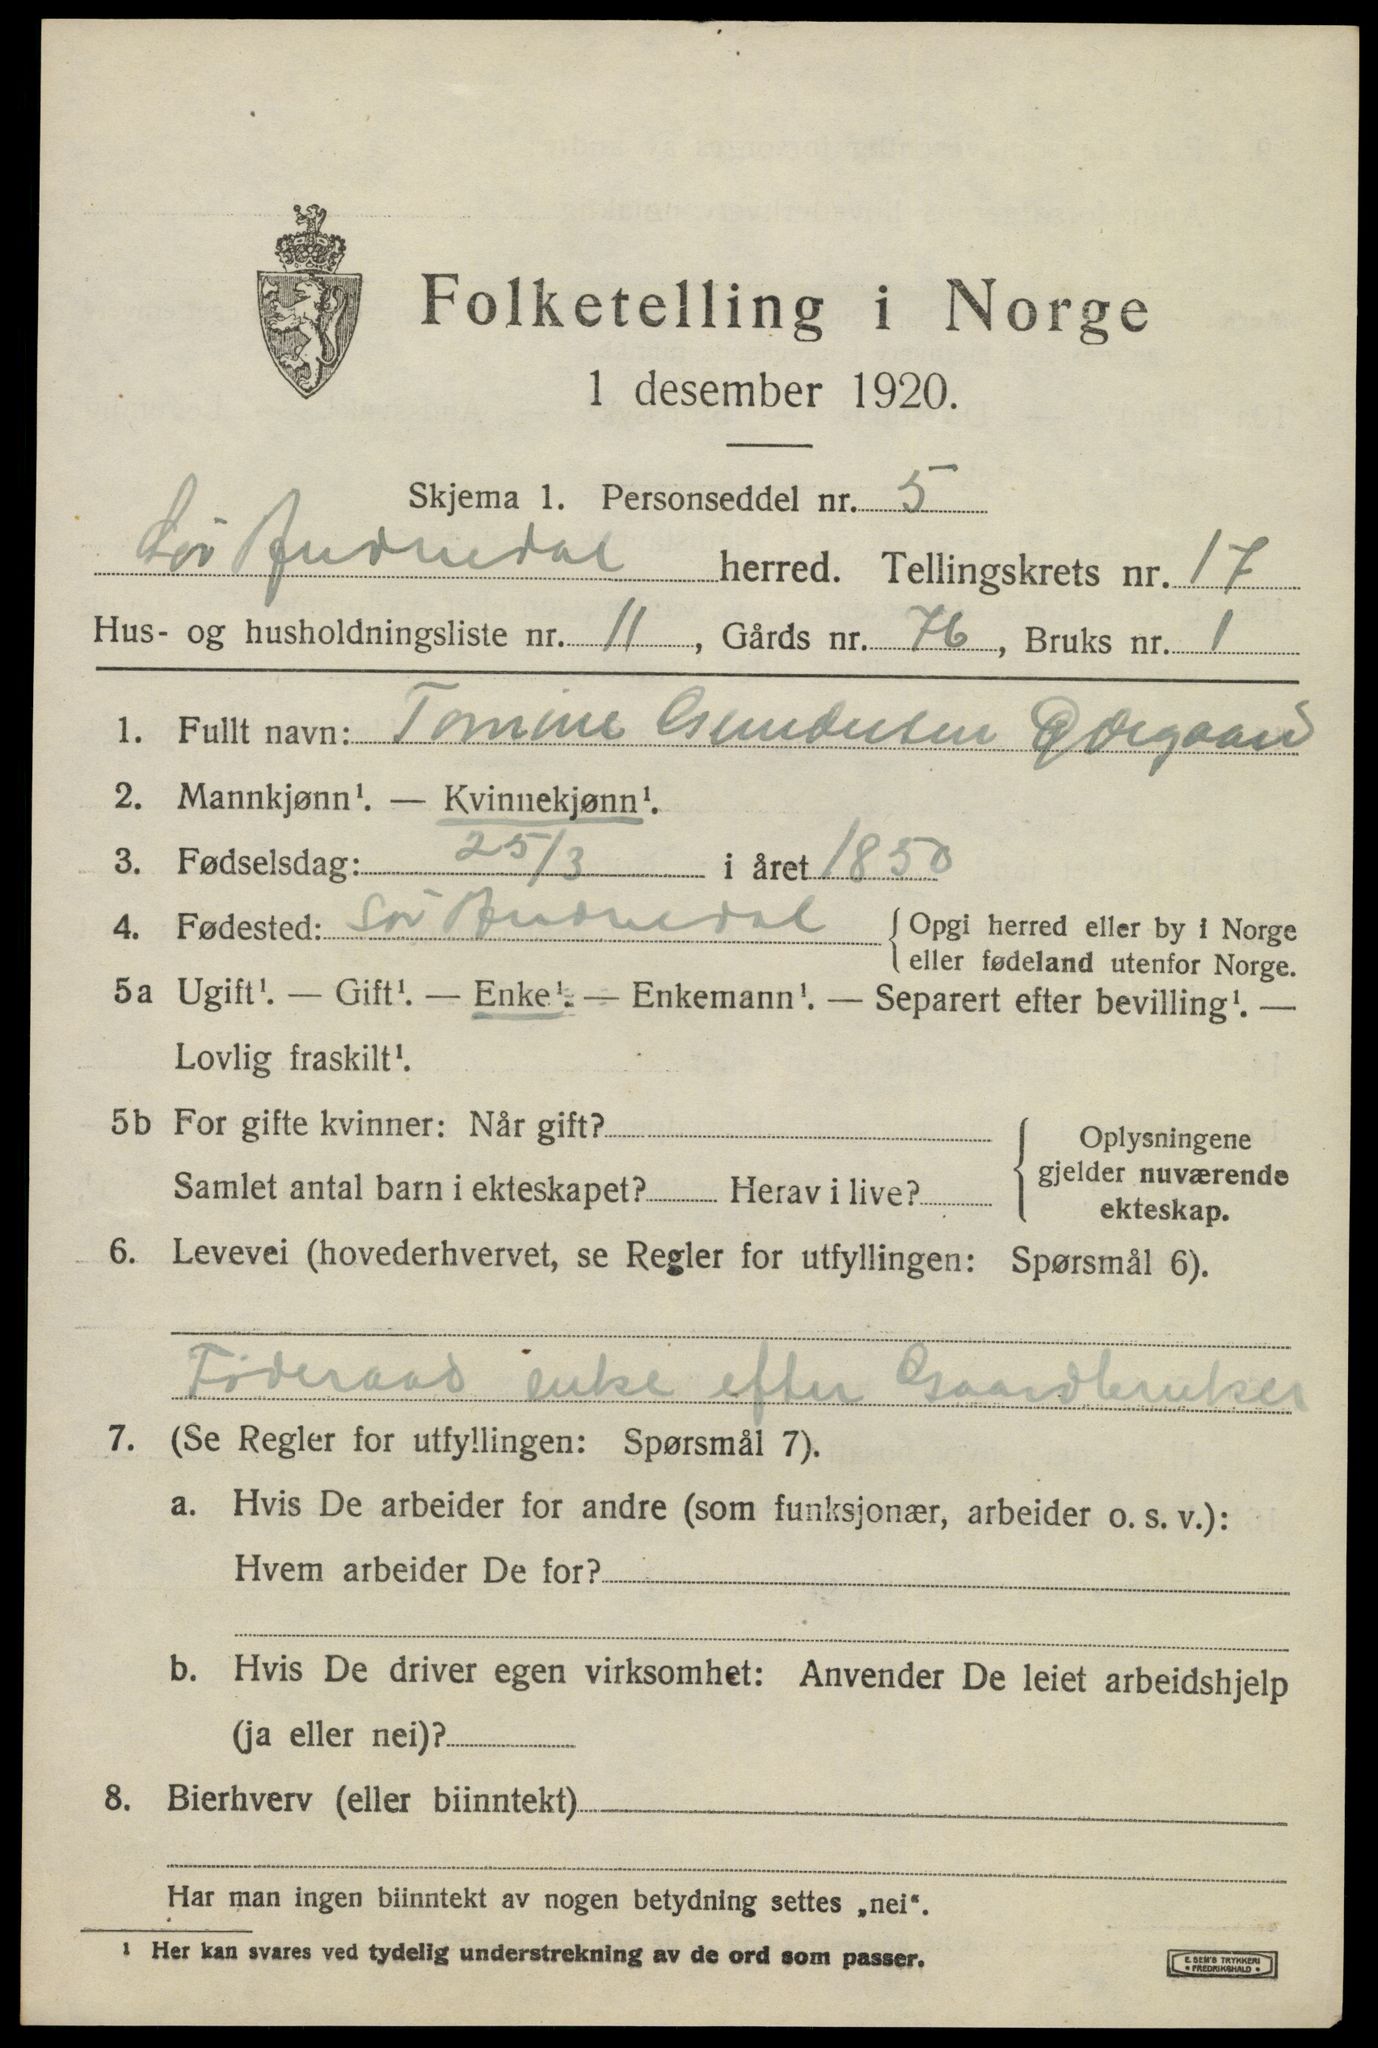 Folketelling i Norge
1 desember 1920.
Skjema 1. Personseddel nr. 5
Sör Audnedal herred. Tellingskrets nr. 17
Hus- og husholdningsliste nr. 11, Gårds nr. 76, Bruks nr. 1
1. Fullt navn: Tomine Gundersen Ødegaard
2. Mannkjønn¹. — Kvinnekjønn¹.
3. Fødselsdag: 25/3 i året 1850
4. Fødested: Sör Audnedal { Opgi herred eller by i Norge
eller fødeland utenfor Norge.
5a Ugift¹. — Gift¹. — Enke¹. — Enkemann¹. — Separert efter bevilling¹. —
Lovlig fraskilt¹.
5b For gifte kvinner: Når gift?
Samlet antal barn i ekteskapet? Herav i live?
{ Oplysningene
gjelder nuværende
ekteskap.
6. Levevei (hovederhvervet, se Regler for utfyllingen: Spørsmål 6).
Föderaad enke efter Gaardbruker
7. (Se Regler for utfyllingen: Spørsmål 7).
a. Hvis De arbeider for andre (som funksjonær, arbeider o. s. v.):
Hvem arbeider De for?
b. Hvis De driver egen virksomhet: Anvender De leiet arbeidshjelp
(ja eller nei)?
8. Bierhverv (eller biinntekt)
Har man ingen biinntekt av nogen betydning settes „nei“.
¹ Her kan svares ved tydelig understrekning av de ord som passer.
E. SEM'S TRYKKERI
• FREDRIKSHALD •